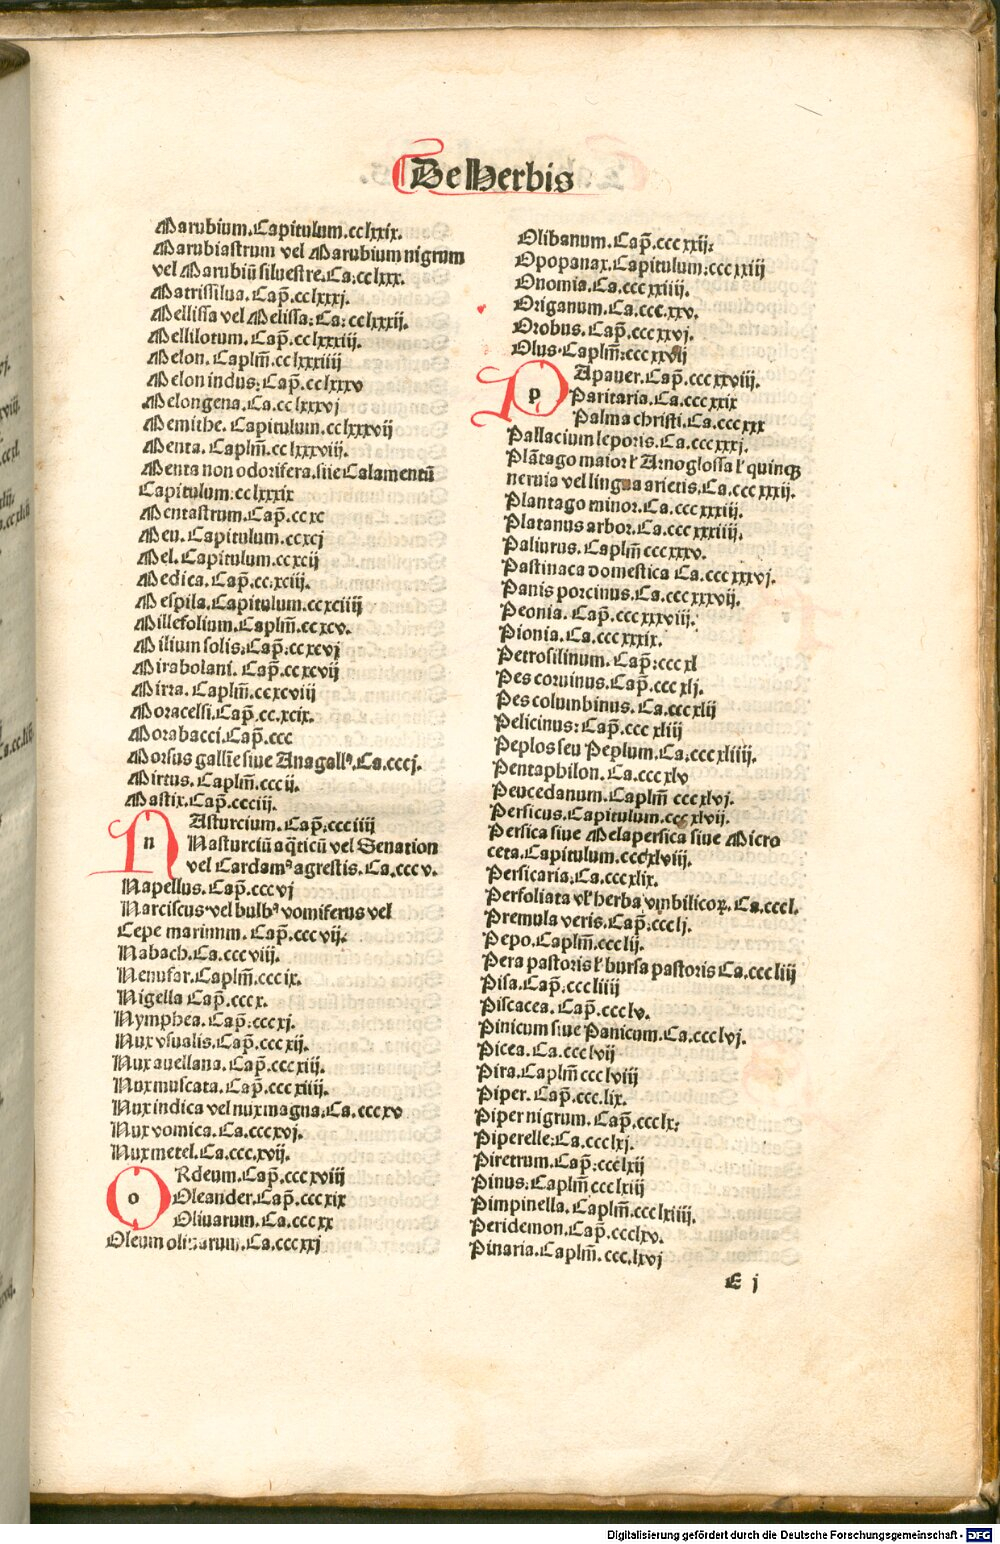 De Herbis
Marubium. Capitulum. cclxxix.
Marubiastrum vel Marubium nigrum
vel Marubiū siluestre. Ca: cclxxx.
Matrissilua. Cap̄. cclxxxj.
Mellissa vel Melissa: Ca: cclxxxij.
Mellilotum. Cap̄. cclxxxiij.
Melon. Caplm̄. cclxxxiiij
Melon indus: Cap̄. cclxxxv
Melongena. Ca. cclxxxvj
Memithe. Capitulum. cclxxxvij
Menta. Caplm̄. cclxxxviij.
Menta non odorifera. siue Calamentū
Capitulum: cclxxxix
Mentastrum. Cap̄. ccxc
Meu. Capitulum. ccxcj
Mel. Capitulum. ccxcij
Medica. Cap̄. cc.xciij.
Mespila. Capitulum. ccxciiij
Millefolium. Caplm̄. ccxcv.
Milium solis: Cap̄: ccxcvj
Mirabolani. Cap̄. ccxcvij
Mirra. Caplm̄. ccxcviij
Moracelsi. Cap̄. cc.xcix.
Morabacci. Cap̄. ccc
Morsus gallīe siue Anagallꝰ. Ca. cccj.
Mirtus. Caplm̄. cccij.
Mastix. Cap̄. ccciij.
n Asturcium. Cap̄: ccciiij
Nasturciū aq̄ticū vel Senation
vel Cardamꝰ agrestis. Ca. cccv.
Napellus. Cap̄. cccvj
Narciscus vel bulbꝰ vomiferus vel
Cepe marinum. Cap̄. cccvij.
Nabach. Ca. cccviij.
Nenufar. Caplm̄. cccix.
Nigella Cap̄. cccx.
Nymphea. Cap̄: cccxj.
Nux vsualis. Cap̄. cccxij.
Nux auellana. Cap̄. cccxiij.
Nux muscata. Cap̄. cccxiiij.
Nux indica vel nux magna: Ca. cccxv
Nux vomica. Ca. cccxvj.
Nux metel. Ca. ccc.xvij.
o Rdeum. Cap̄. cccxviij
Oleander. Cap̄. cccxix
Oliuarum. Ca. cccxx
Oleum oliuarum. Ca. cccxxj
Olibanum. Cap̄. cccxxij:
Opopanax. Capitulum: cccxxiij
Onomia. Ca. cccxxiiij.
Origanum. Ca. cccxxv.
Orobus. Cap̄. cccxxvj.
Olus. Caplm̄: cccxxvij
p Apauer. Cap̄. cccxxviij.
Paritaria. Ca. cccxxix
Palma christi. Ca. cccxxx
Pallacium leporis. Ca. cccxxxj.
Plātago maior ł Arnoglossa ł quinqꝫ
neruia vel lingua arietis. Ca. cccxxxij.
Plantago minor. Ca. cccxxxiij.
Platanus arbor. Ca. cccxxxiiij.
Paliurus. Caplm̄ cccxxxv.
Pastinaca domestica Ca. cccxxxvj.
Panis porcinus. Ca. cccxxxvij.
Peonia. Cap̄. cccxxxviij.
Pionia. Ca. cccxxxix.
Petrosilinum. Cap̄: cccxl
Pes coruinus. Cap̄. cccxlj.
Pes columbinus. Ca. cccxlij
Pelicinus: Cap̄. cccxliij
Peplos seu Peplum. Ca. cccxliiij.
Pentaphilon. Ca. cccxlv
Peucedanum. Caplm̄ cccxlvj.
Persicus. Capitulum. cccxlvij.
Persica siue Melapersica siue Micro
ceta. Capitulum. cccxlviij.
Persicaria. Ca. cccxlix.
Perfoliata vł herba vmbilicoꝝ. Ca. cccl.
Premula veris. Cap̄: ccclj.
Pepo. Caplm̄. ccclij.
Pera pastoris ł bursa pastoris Ca. cccliij
Pisa. Cap̄: cccliiij
Piscacea. Cap̄. ccclv.
Pinicum siue Panicum. Ca. ccclvj.
Picea. Ca. ccclvij
Pira. Caplm̄ ccclviij
Piper. Cap̄. ccc.lix.
Piper nigrum. Cap̄. ccclx:
Piperelle: Ca. ccclxj.
Piretrum. Cap̄: ccclxij
Pinus: Caplm̄ ccclxiij
Pimpinella. Caplm̄. ccclxiiij.
Peridemon. Cap̄. ccclxv.
Pinaria. Caplm̄. ccc.lxvj
E j
Digitalisierung gefördert durch die Deutsche Forschungsgemeinschaft - DFG